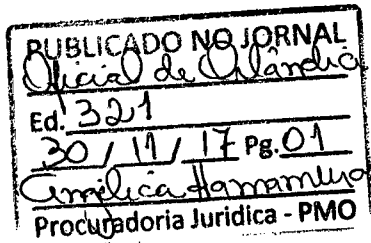 PUBLICADO NO JORNAL
Oficial de Orlândia
Ed. 321
30 / 11 / 17 Pg. 01
Angélica
Procuradoria Juridica - PMO